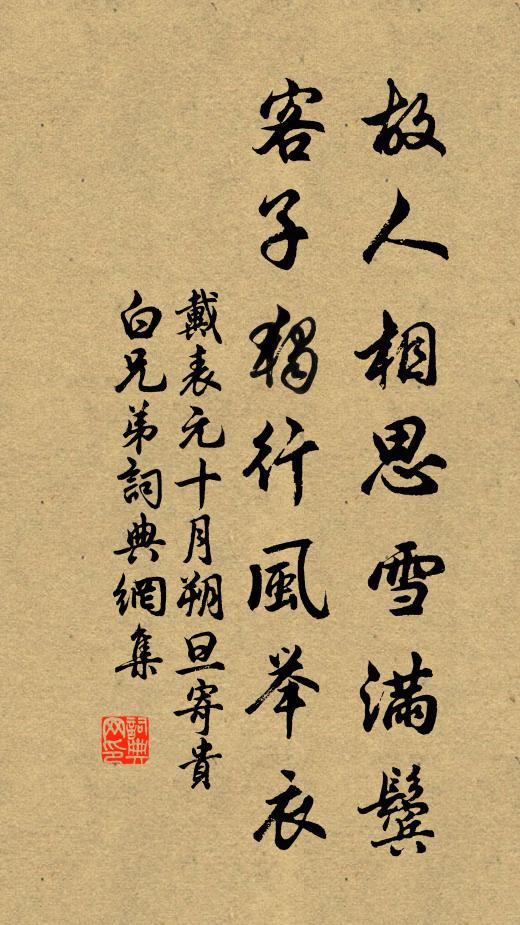 故人相思雪滿鬢
客子獨行風举衣
戴表元十月朔旦寄貴
白兄弟詞典網集
詞典
网印